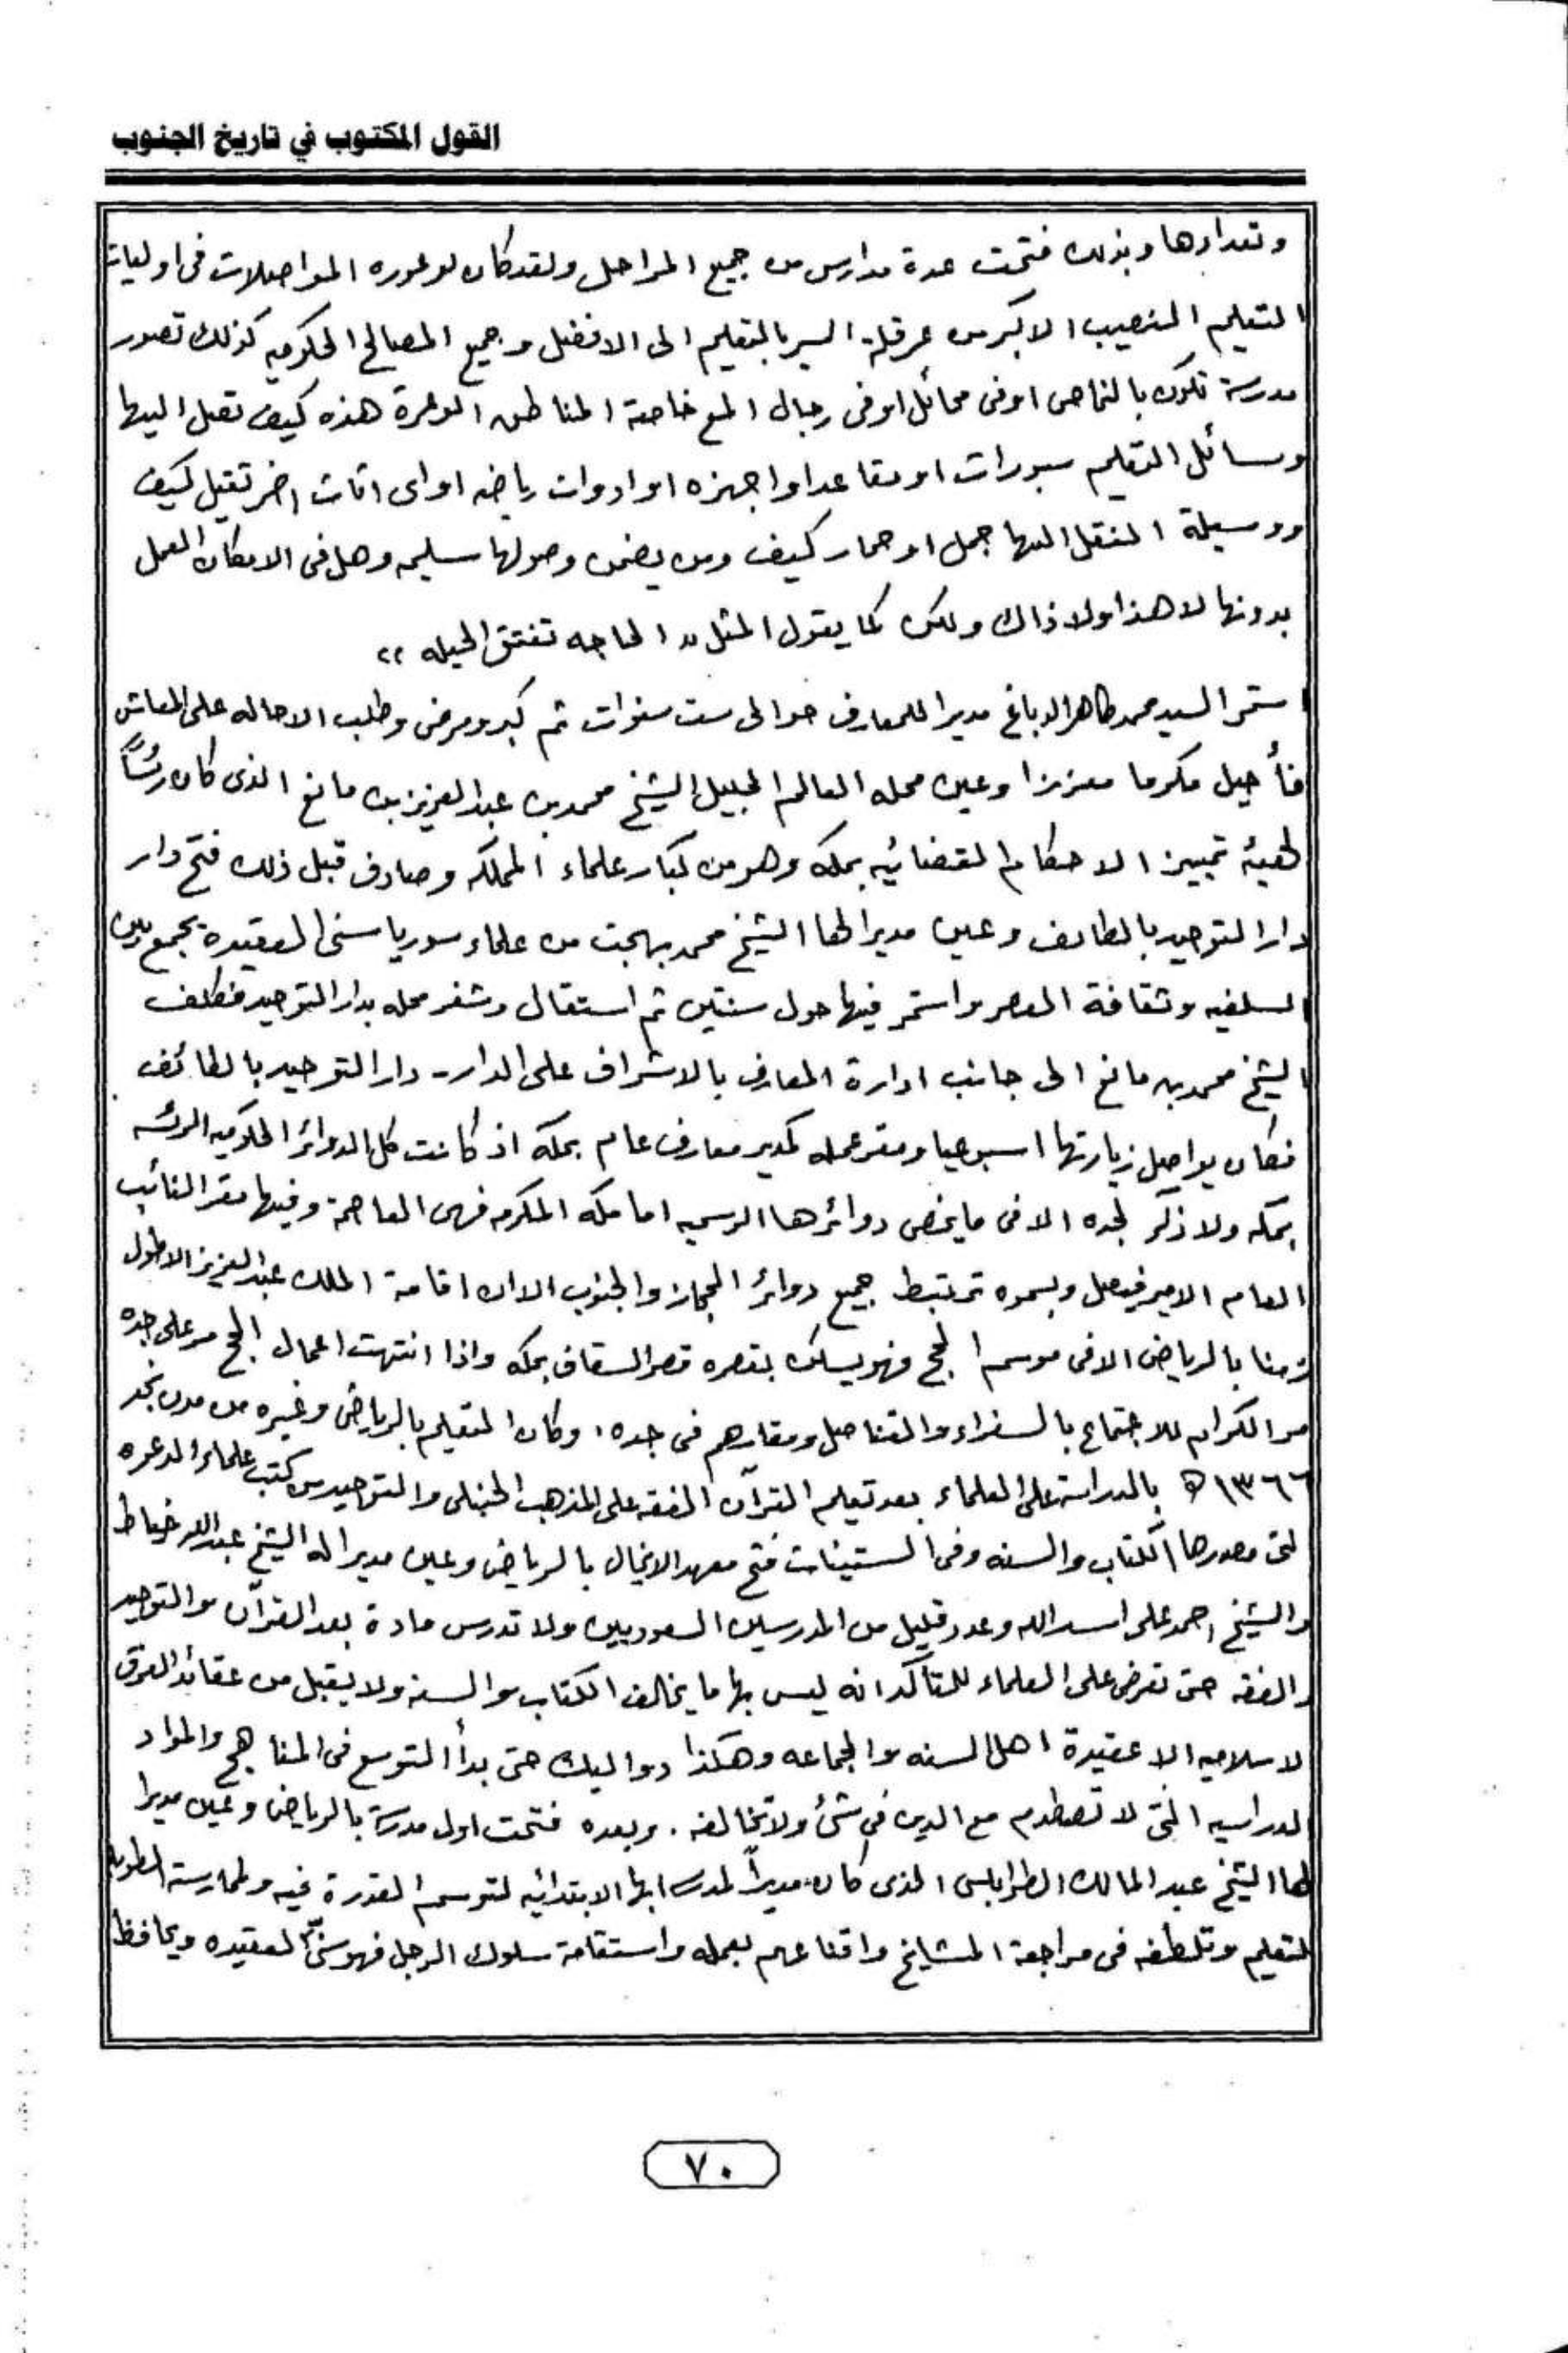 القول المكتوب في تاريخ الجنوب
وتعدادها وبذلك فتحت عدة مدارس من جميع المراحل ولقد كان لوعوره المواصلات فى اوليات
التعليم النصيب الاكبر من عرقلة السير بالتعليم الى الافضل وجميع المصالح الحكوميه كذلك تصور
مدرسة تكون بالنماص او فى محائل او فى رجال المع خاصة المناطق الوعرة هذه كيف تصل اليها
وسائل التعليم سبورات او مقاعد او اجهزه او ادوات رياضه او اى اثاث اخر تقيل كيف
ووسيلة النقل اليها جمل او حمار كيف ومن يضمن وصولها سليمه وهل فى الامكان العمل
بدونها لا هذا ولا ذاك ولكن كما يقول المثل (( الحاجه تفتق الحيله ))
استمر السيد محمد طاهر الدباغ مديرا للمعارف حوالى ست سنوات ثم كبر ومرض وطلب الاحاله على المعاش
فأحيل مكرما معززا وعين محله العالم الجليل الشيخ محمد بن عبد العزيز بن مانع الذى كان رئيساً
لهيئة تمييز الاحكام القضائيه بمكه وهو من كبار علماء المملكه وصادف قبل ذلك فتح دار
دار التوحيد بالطائف وعين مديرا لها الشيخ محمد بهجت من علماء سوريا سنى العقيده يجمع بين
السلفيه وثقافة العصر واستمر فيها حول سنتين ثم استقال وشغر محله بدار التوحيد فكلف
الشيخ محمد بن مانع الى جانب ادارة المعارف بالاشراف على الدار - دار التوحيد بالطائف
فكان يواصل زيارتها اسبوعيا ومقر عمله كمدير معارف عام بمكه اذ كانت كل الدوائر الحكوميه
بمكه ولا ذكر لجده الا فى ما يخص دوائرها الرسميه اما مكه المكرمه فهى العاصمة وفيها مقر النائب
العام الامير فيصل وبسموه ترتبط جميع دوائر الحجاز والجنوب الا ان اقامة الملك عبد العزيز الاطول
زمنا بالرياض الا فى موسم الحج فهو يسكن بقصره قصر السقاف بمكه واذا انتهت اعمال الحج مر على جده
مر الكرام للاجتماع بالسفراء والقناصل ومقارهم فى جده، وكان التعليم بالرياض وغيره من مدن نجد
١٣٦٦ هـ بالدراسة على العلماء بعد تعليم القرآن الفقه على المذهب الحنبلى والتوحيد من كتب علماء الدعوه
التى مصدرها الكتاب والسنه وفى الستينات فتح معهد الانجال بالرياض وعين مديرا له الشيخ عبد الله خياط
والشيخ احمد على اسد الله وعدد قليل من المدرسين السعوديين ولا تدرس مادة بعد القرآن والتوحيد
والفقه حتى تعرض على العلماء للتأكد انه ليس بها ما يخالف الكتاب والسنه ولا يقبل من عقائد الفرق
الاسلاميه الا عقيدة اهل السنه والجماعه وهكذا دواليك حتى بدأ التوسع فى المناهج والمواد
الدراسيه التى لا تصطدم مع الدين في شئ ولا تخالفه . وبعده فتحت اول مدرسة بالرياض وعين مديرا
لها الشيخ عبد المالك الطرابلسى الذى كان مديراً لمدرسة ابها الابتدائيه لتوسم القدرة فيه ولممارسته الطويلة
للتعليم وتلطفه فى مراجعة المشايخ واقناعهم بعمله واستقامة سلوك الرجل فهو سنيّ العقيده ويحافظ
٧٠